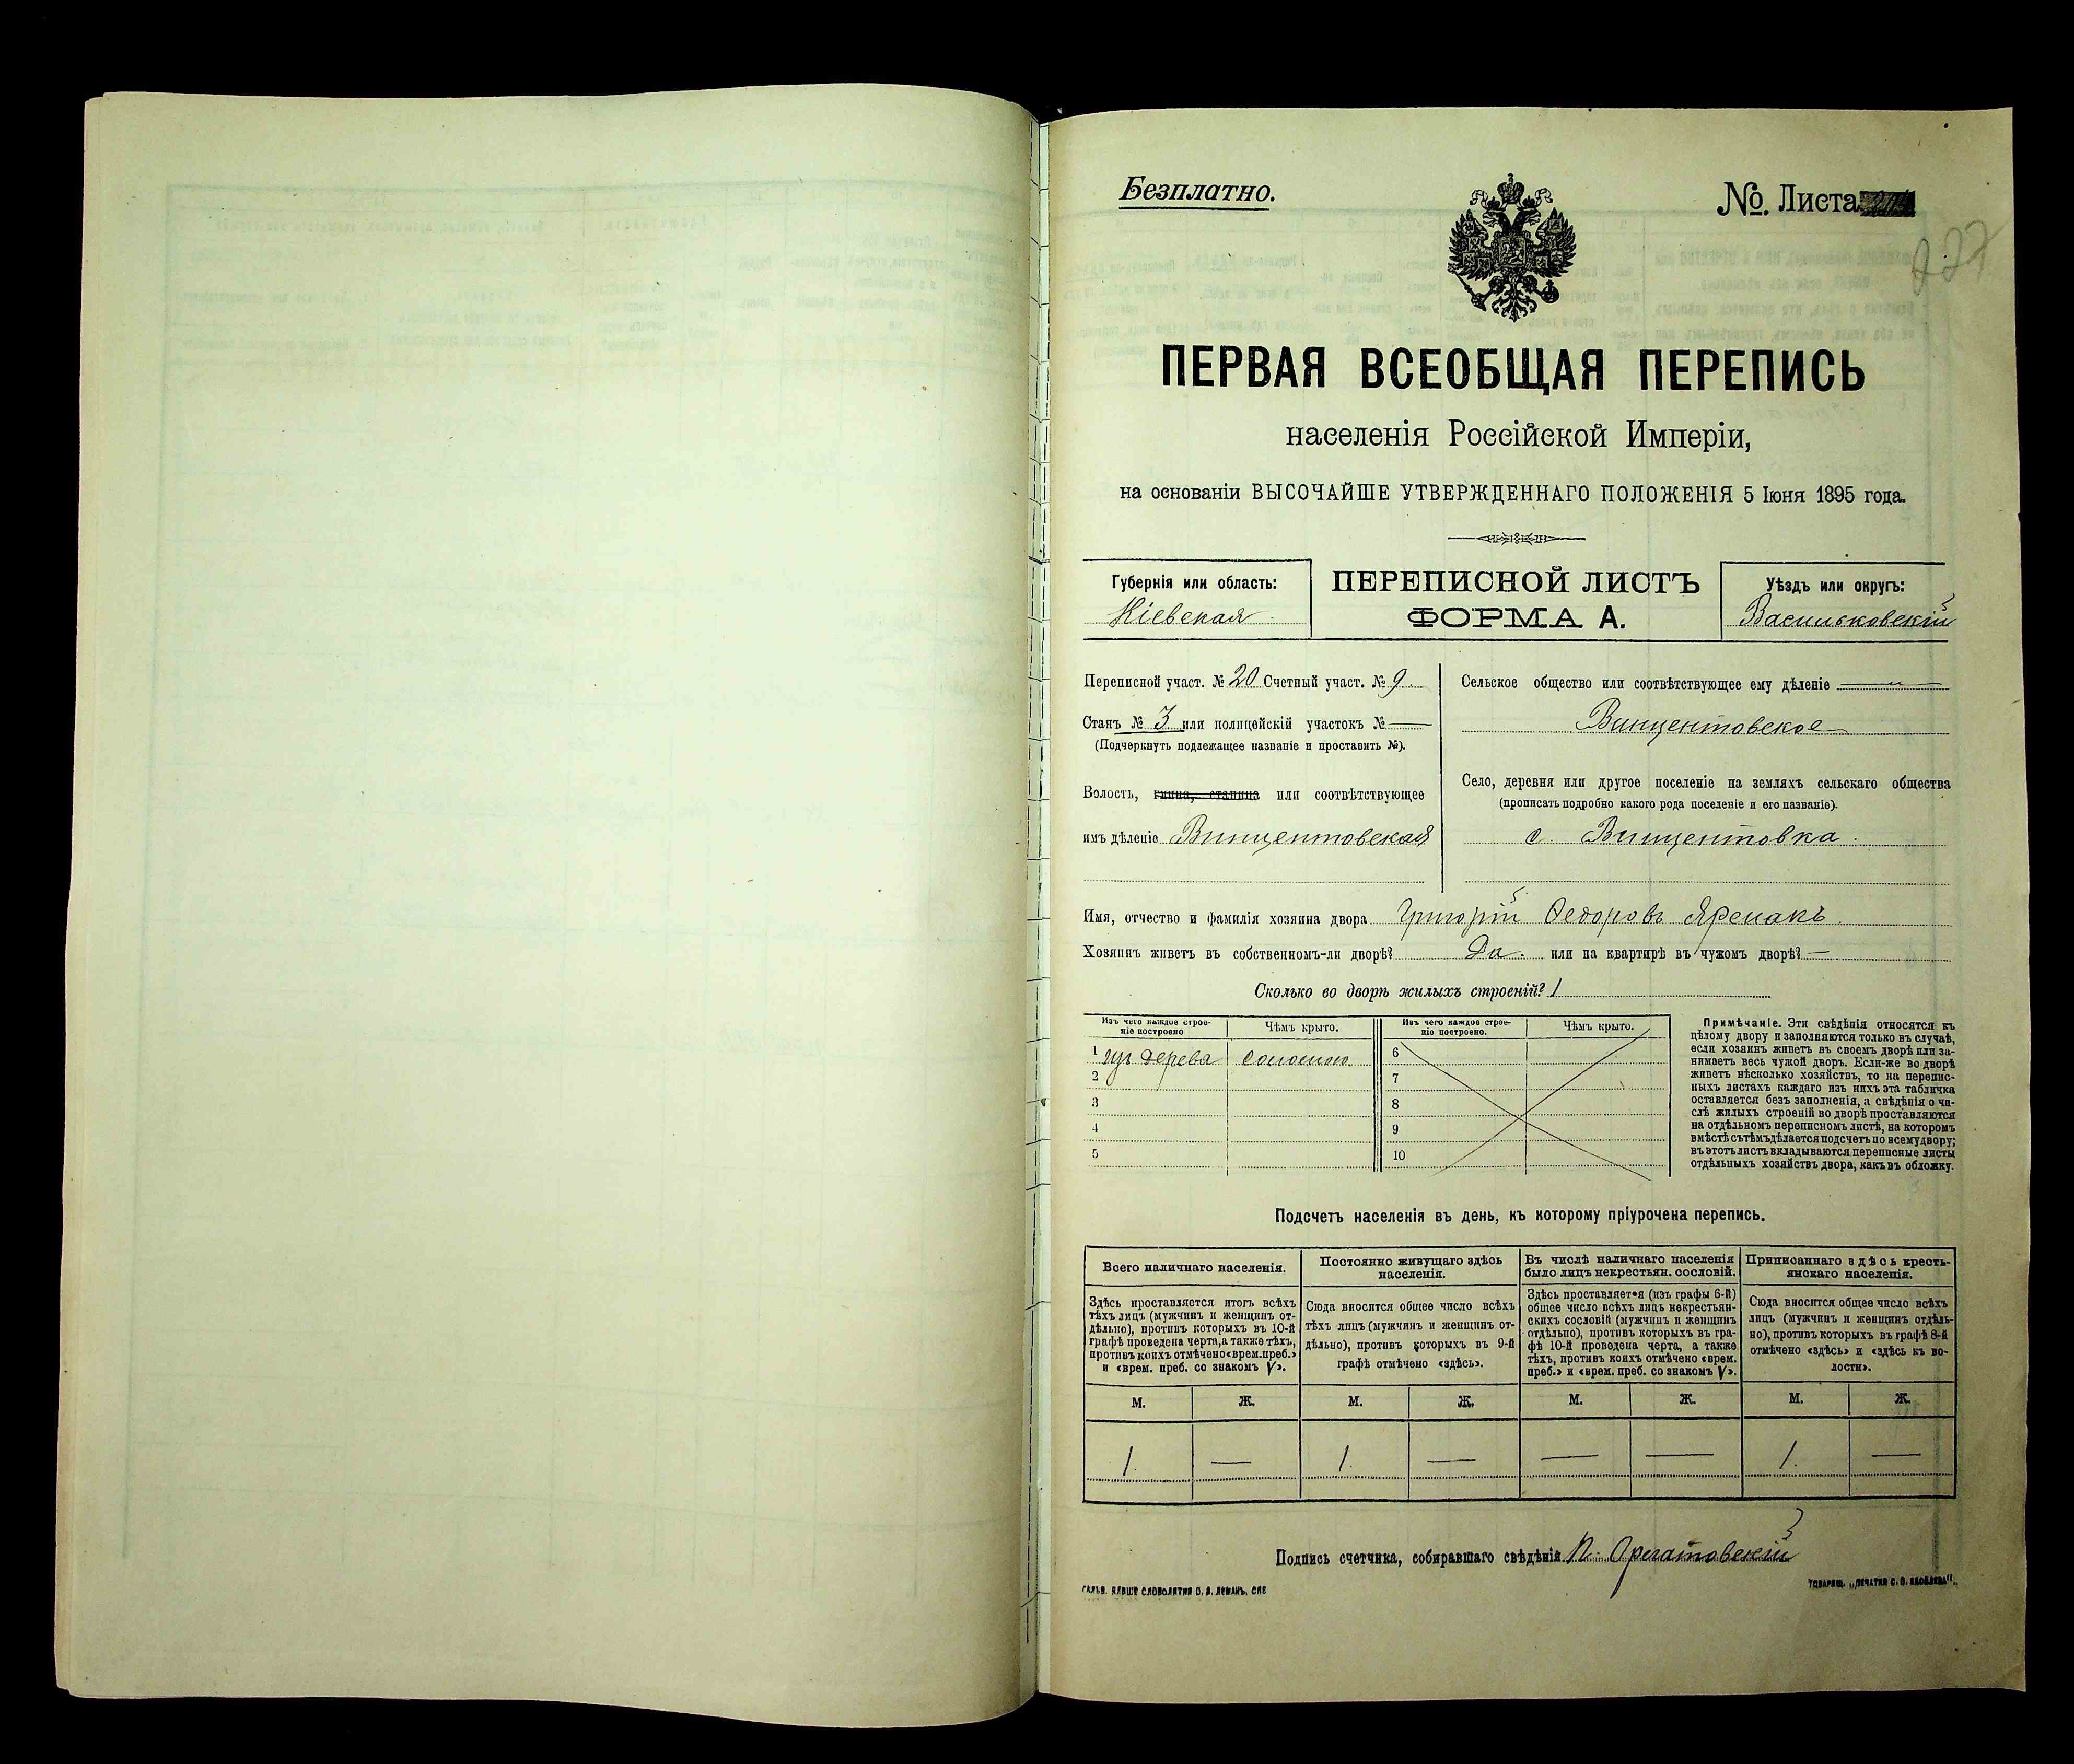 Безплатно.
№. Листа
227
ПЕРВАЯ ВСЕОБЩАЯ ПЕРЕПИСЬ
населенія Россійской Имперіи,
на основаніи ВЫСОЧАЙШЕ УТВЕРЖДЕННАГО ПОЛОЖЕНІЯ 5 Іюня 1895 года.
Губернія или область:
Кіевская
ПЕРЕПИСНОЙ ЛИСТЪ
ФОРМА А.
Уѣздъ или округъ:
Васильковскій
Переписной участ. № 20 Счетный участ. № 9
Станъ № 3 или полицейскій участокъ № —
(Подчеркнуть подлежащее названіе и проставить №).
Волость, гмина, станица или соотвѣтствующее
имъ дѣленіе Винцентовская
Сельское общество или соотвѣтствующее ему дѣленіе
Винцентовское
Село, деревня или другое поселеніе на земляхъ сельскаго общества
(прописать подробно какого рода поселеніе и его названіе).
с. Винцентовка.
Имя, отчество и фамилія хозяина двора Григорій Федоровъ
Хозяинъ живетъ въ собственномъ-ли дворѣ? Да. или на квартирѣ въ чужомъ дворѣ? —
Сколько во дворѣ жилыхъ строеній? 1
Изъ чего каждое строе-
ніе построено
Чѣмъ крыто.
Изъ чего каждое строе-
ніе построено.
Чѣмъ крыто.
1 изъ дерева соломою 6
2 7
3 8
4 9
5 10
Примѣчаніе. Эти свѣдѣнія относятся къ
цѣлому двору и заполняются только въ случаѣ,
если хозяинъ живетъ въ своемъ дворѣ или за-
нимаетъ весь чужой дворъ. Если-же во дворѣ
живетъ нѣсколько хозяйствъ, то на перепис-
ныхъ листахъ каждаго изъ нихъ эта табличка
оставляется безъ заполненія, а свѣдѣнія о чи-
слѣ жилыхъ строеній во дворѣ проставляются
на отдѣльномъ переписномъ листѣ, на которомъ
вмѣстѣ съ тѣмъ дѣлается подсчетъ по всему двору;
въ этотъ листъ вкладываются переписные листы
отдѣльныхъ хозяйствъ двора, какъ въ обложку.
Подсчетъ населенія въ день, къ которому пріурочена перепись.
Всего наличнаго населенія.
Здѣсь проставляется итогъ всѣхъ
тѣхъ лицъ (мужчинъ и женщинъ от-
дѣльно), противъ которыхъ въ 10-й
графѣ проведена черта, а также тѣхъ,
противъ коихъ отмѣчено «врем. преб.»
и «врем. преб. со знакомъ V».
Постоянно живущаго здѣсь
населенія.
Сюда вносится общее число всѣхъ
тѣхъ лицъ (мужчинъ и женщинъ от-
дѣльно), противъ которыхъ въ 9-й
графѣ отмѣчено «здѣсь».
Въ числѣ наличнаго населенія
было лицъ некрестьян. сословій.
Здѣсь проставляется (изъ графы 6-й)
общее число всѣхъ лицъ некрестьян-
скихъ сословій (мужчинъ и женщинъ
отдѣльно), противъ которыхъ въ гра-
фѣ 10-й проведена черта, а также
тѣхъ, противъ коихъ отмѣчено «врем.
преб.» и «врем. преб. со знакомъ V».
Приписаннаго здѣсь кресть-
янскаго населенія.
Сюда вносится общее число всѣхъ
лицъ (мужчинъ и женщинъ отдѣль-
но), противъ которыхъ въ графѣ 8-й
отмѣчено «здѣсь» и «здѣсь къ во-
лости».
М. Ж. М. Ж. М. Ж. М. Ж.
1. — 1. — — — 1. —
Подпись счетчика, собиравшаго свѣдѣнія
ТОВАРИЩ. „ПЕЧАТНЯ С. П. ЯКОВЛЕВА".